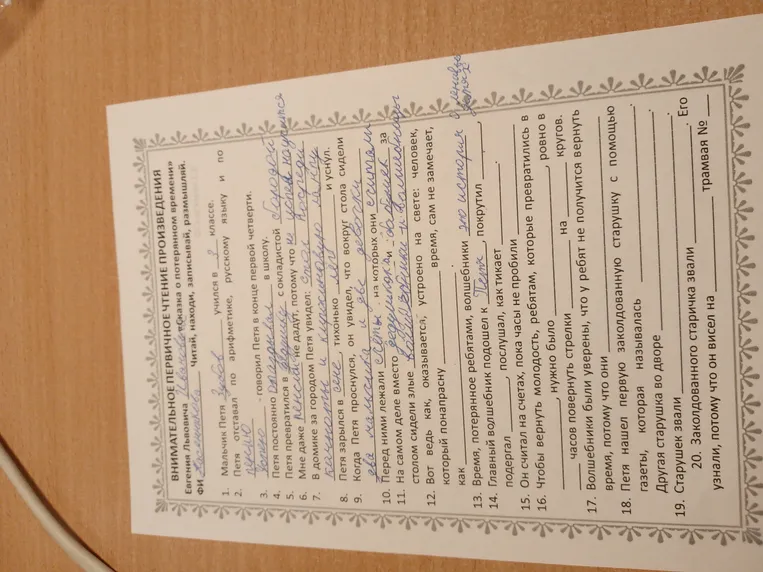 ВНИМАТЕЛЬНОЕ ПЕРВИЧНОЕ ЧТЕНИЕ ПРОИЗВЕДЕНИЯ
Евгения Львовича «Сказка о потерянном времени»
ФИ Читай, находи, записывай, размышляй.
1. Мальчик Петя Зубов учился в классе.
2. Петя отставал по арифметике, русскому языку и по
пению
3. - говорил Петя в конце первой четверти.
4. Петя постоянно опаздывал в школу.
5. Петя превратился в с окладистой бородой
6. Мне даже пенсию не дадут, потому что не успел
7. В домике за городом Петя увидел: стол посреди
комнаты и керосиновую лампу
8. Петя зарылся в сене, тихонько и уснул.
9. Когда Петя проснулся, он увидел, что вокруг стола сидели
два мальчика и две девочки
10. Перед ними лежали счеты на которых они считали
11. На самом деле вместо и за
столом сидели злые волшебники и волшебницы
12. Вот ведь как, оказывается, устроено на свете: человек,
который понапрасну время, сам не замечает,
как
13. Время, потерянное ребятами, волшебники
14. Главный волшебник подошел к , покрутил ,
подергал , послушал, как тикает .
15. Он считал на счетах, пока часы не пробили
16. Чтобы вернуть молодость, ребятам, которые превратились в
, нужно было , ровно в
часов повернуть стрелки на кругов.
17. Волшебники были уверены, что у ребят не получится вернуть
время, потому что они .
18. Петя нашел первую заколдованную старушку с помощью
газеты, которая называлась .
Другая старушка во дворе .
19. Старушек звали . Его
20. Заколдованного старичка звали
узнали, потому что он висел на трамвая №